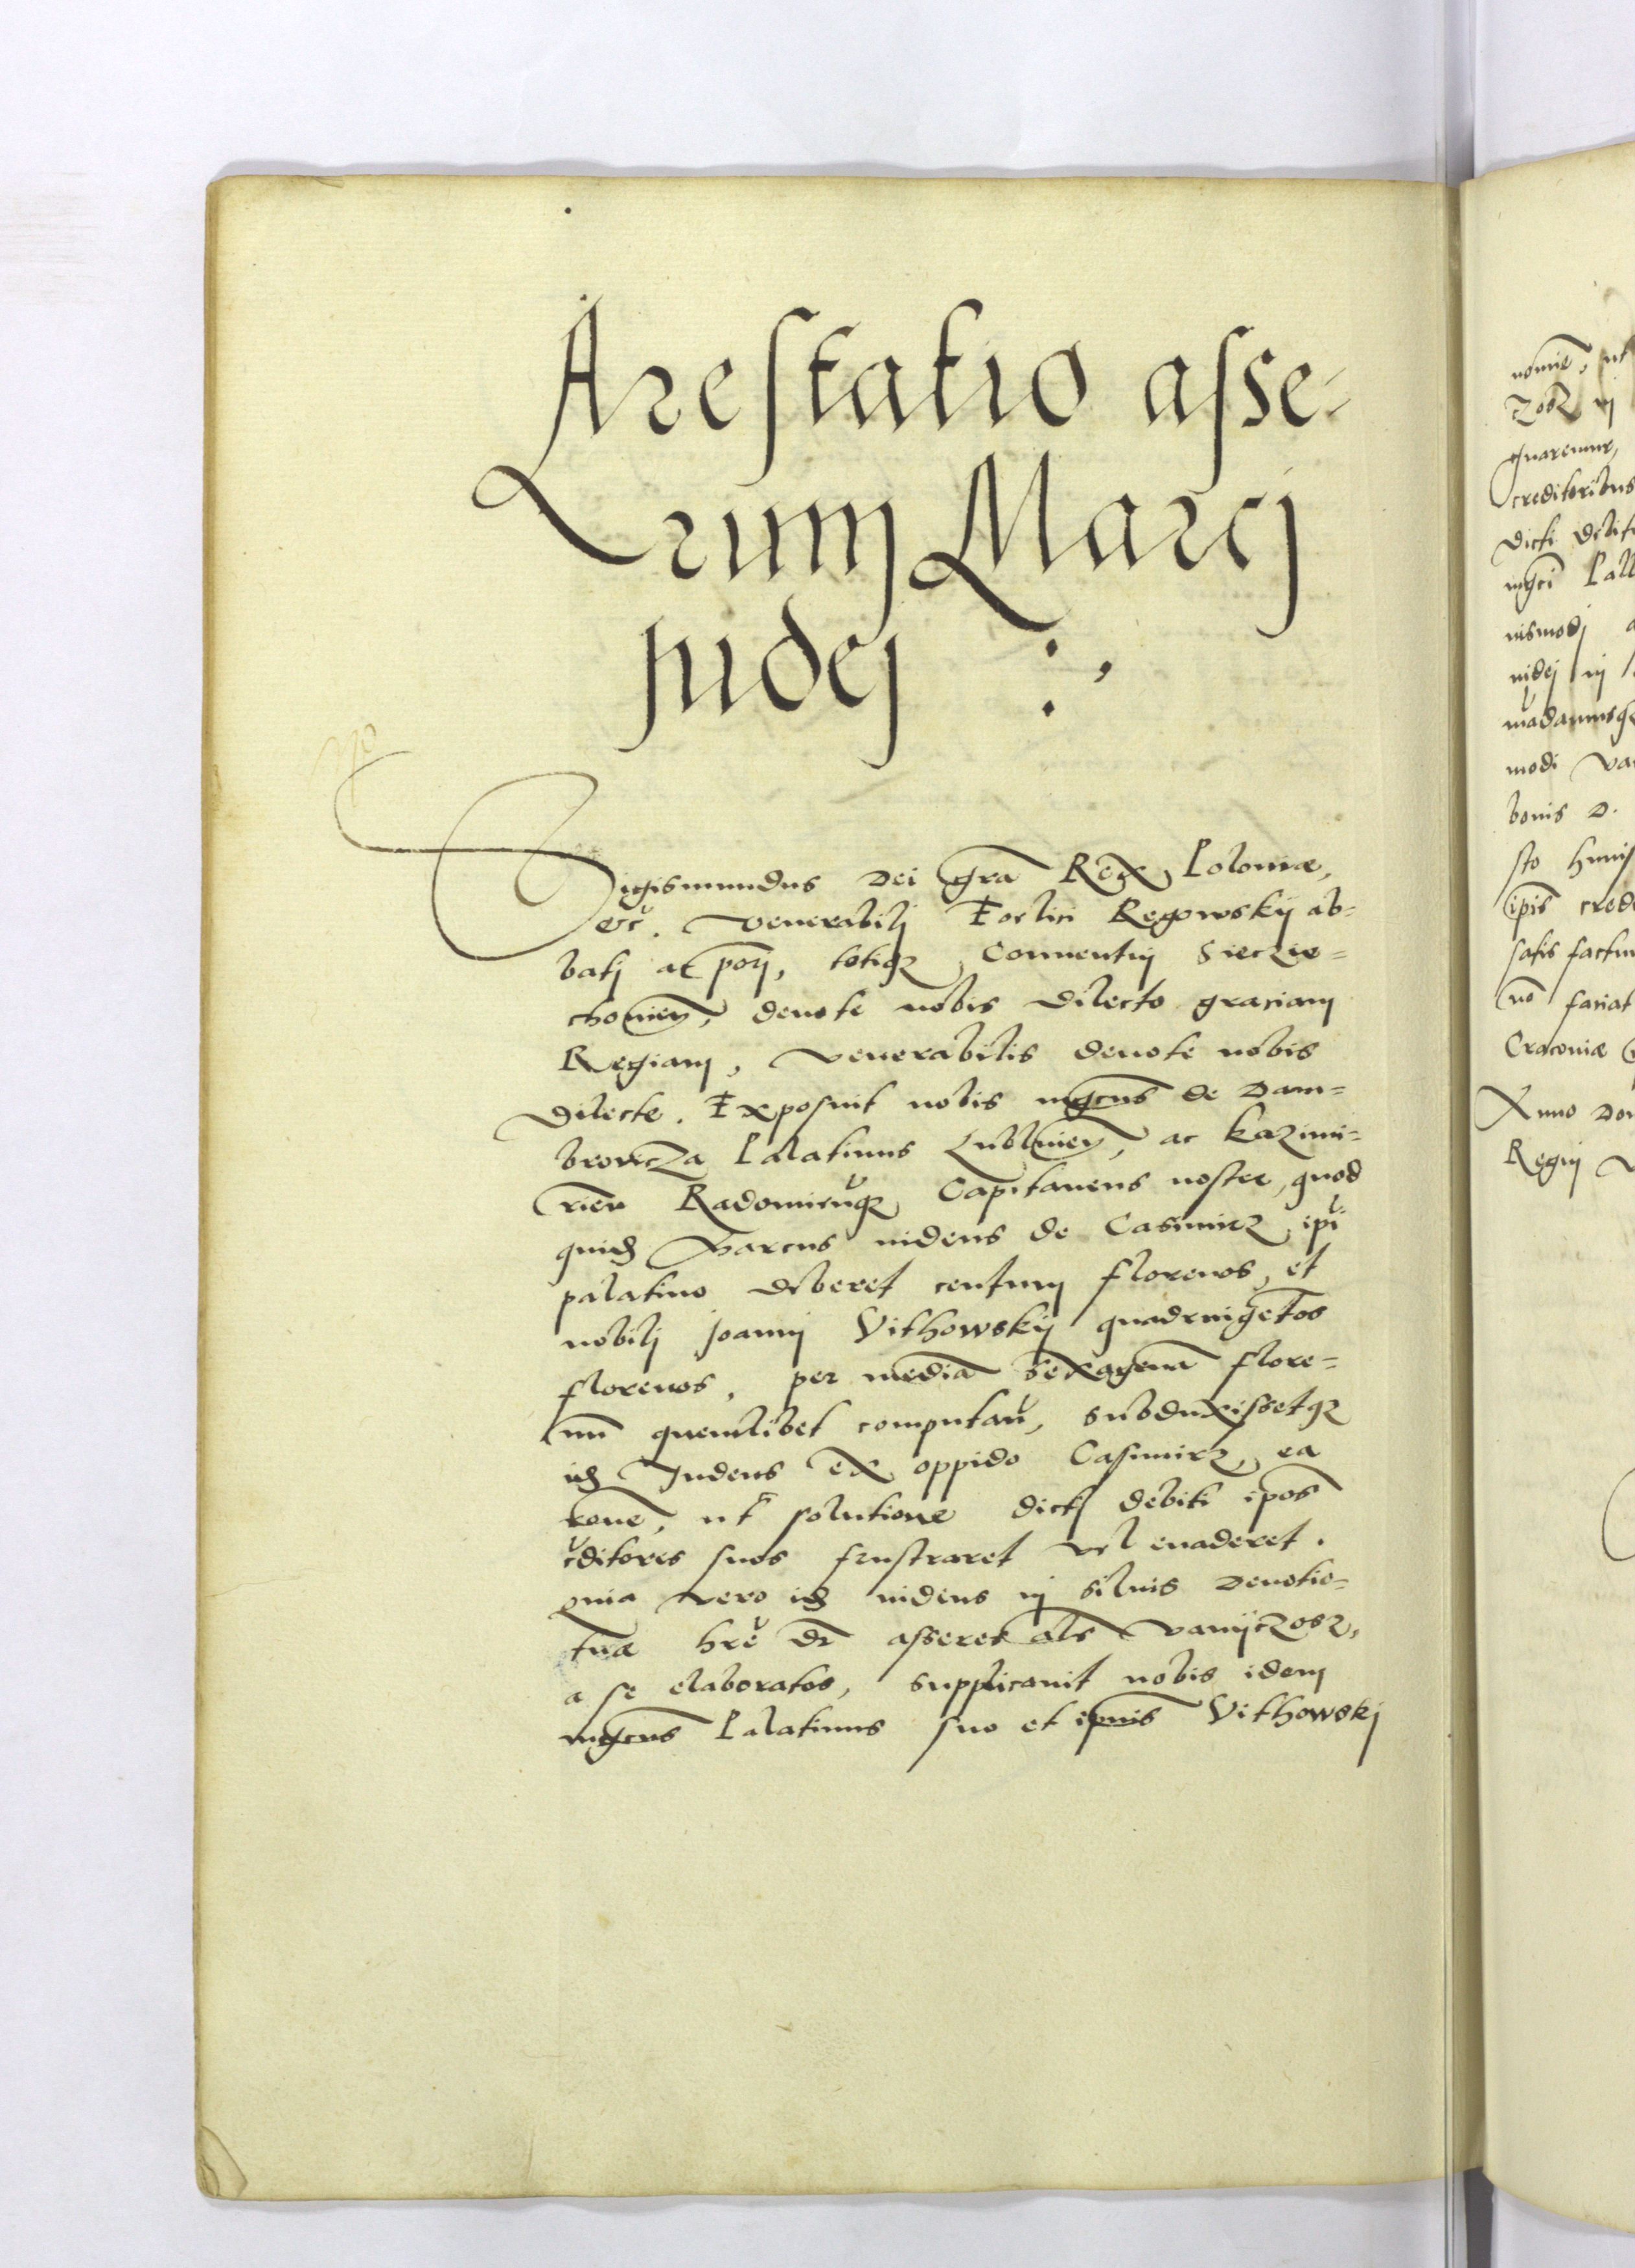 Arestatio asse-
rum Marcj
judej :,
Sigismundus Dei gra Rex Poloniæ,
etc. Venerabilj Foelici Regowskij ab=
batj ac pori, totiqz Conventuj Sieczie=
choviey, devote nobis dilecto graciam
Regiam, Venerabilis devote nobis
dilecte. Exposuit nobis mgcus de Dam=
browicza Palatinus Lubliney, ac Kazimi=
rien Radomieuqz Capitaneus noster, quod
quid Marcus iudeus de Casimirz ipi
palatino deberet centum florenos, et
nobilj Joannj Vithowskij quadringetos
florenos, per media sexagena flore=
nu quemlibet computan, subduxissetqz
id Iudeus ex oppido Casimirz, ea
rone, ut solutione dictj debiti ipos
cditores suos frustraret vel evaderet.
quia vero id iudeus in silvis Devotio=
tuæ hre dr asseres als vanijczosz,
a se elaboratos, supplicavit nobis idem
mgcus Palatinus suo et ipius Vithowskj
nomie, ut
czosz in
quaremur,
creditoribus
dicti debit
mgci Pall
iusmodj a
iudej in
madamusqz
modi va
bonis D.
sto huius
ipis cred
satis factu
no faciat
Cracoviæ
Anno Do
Regni